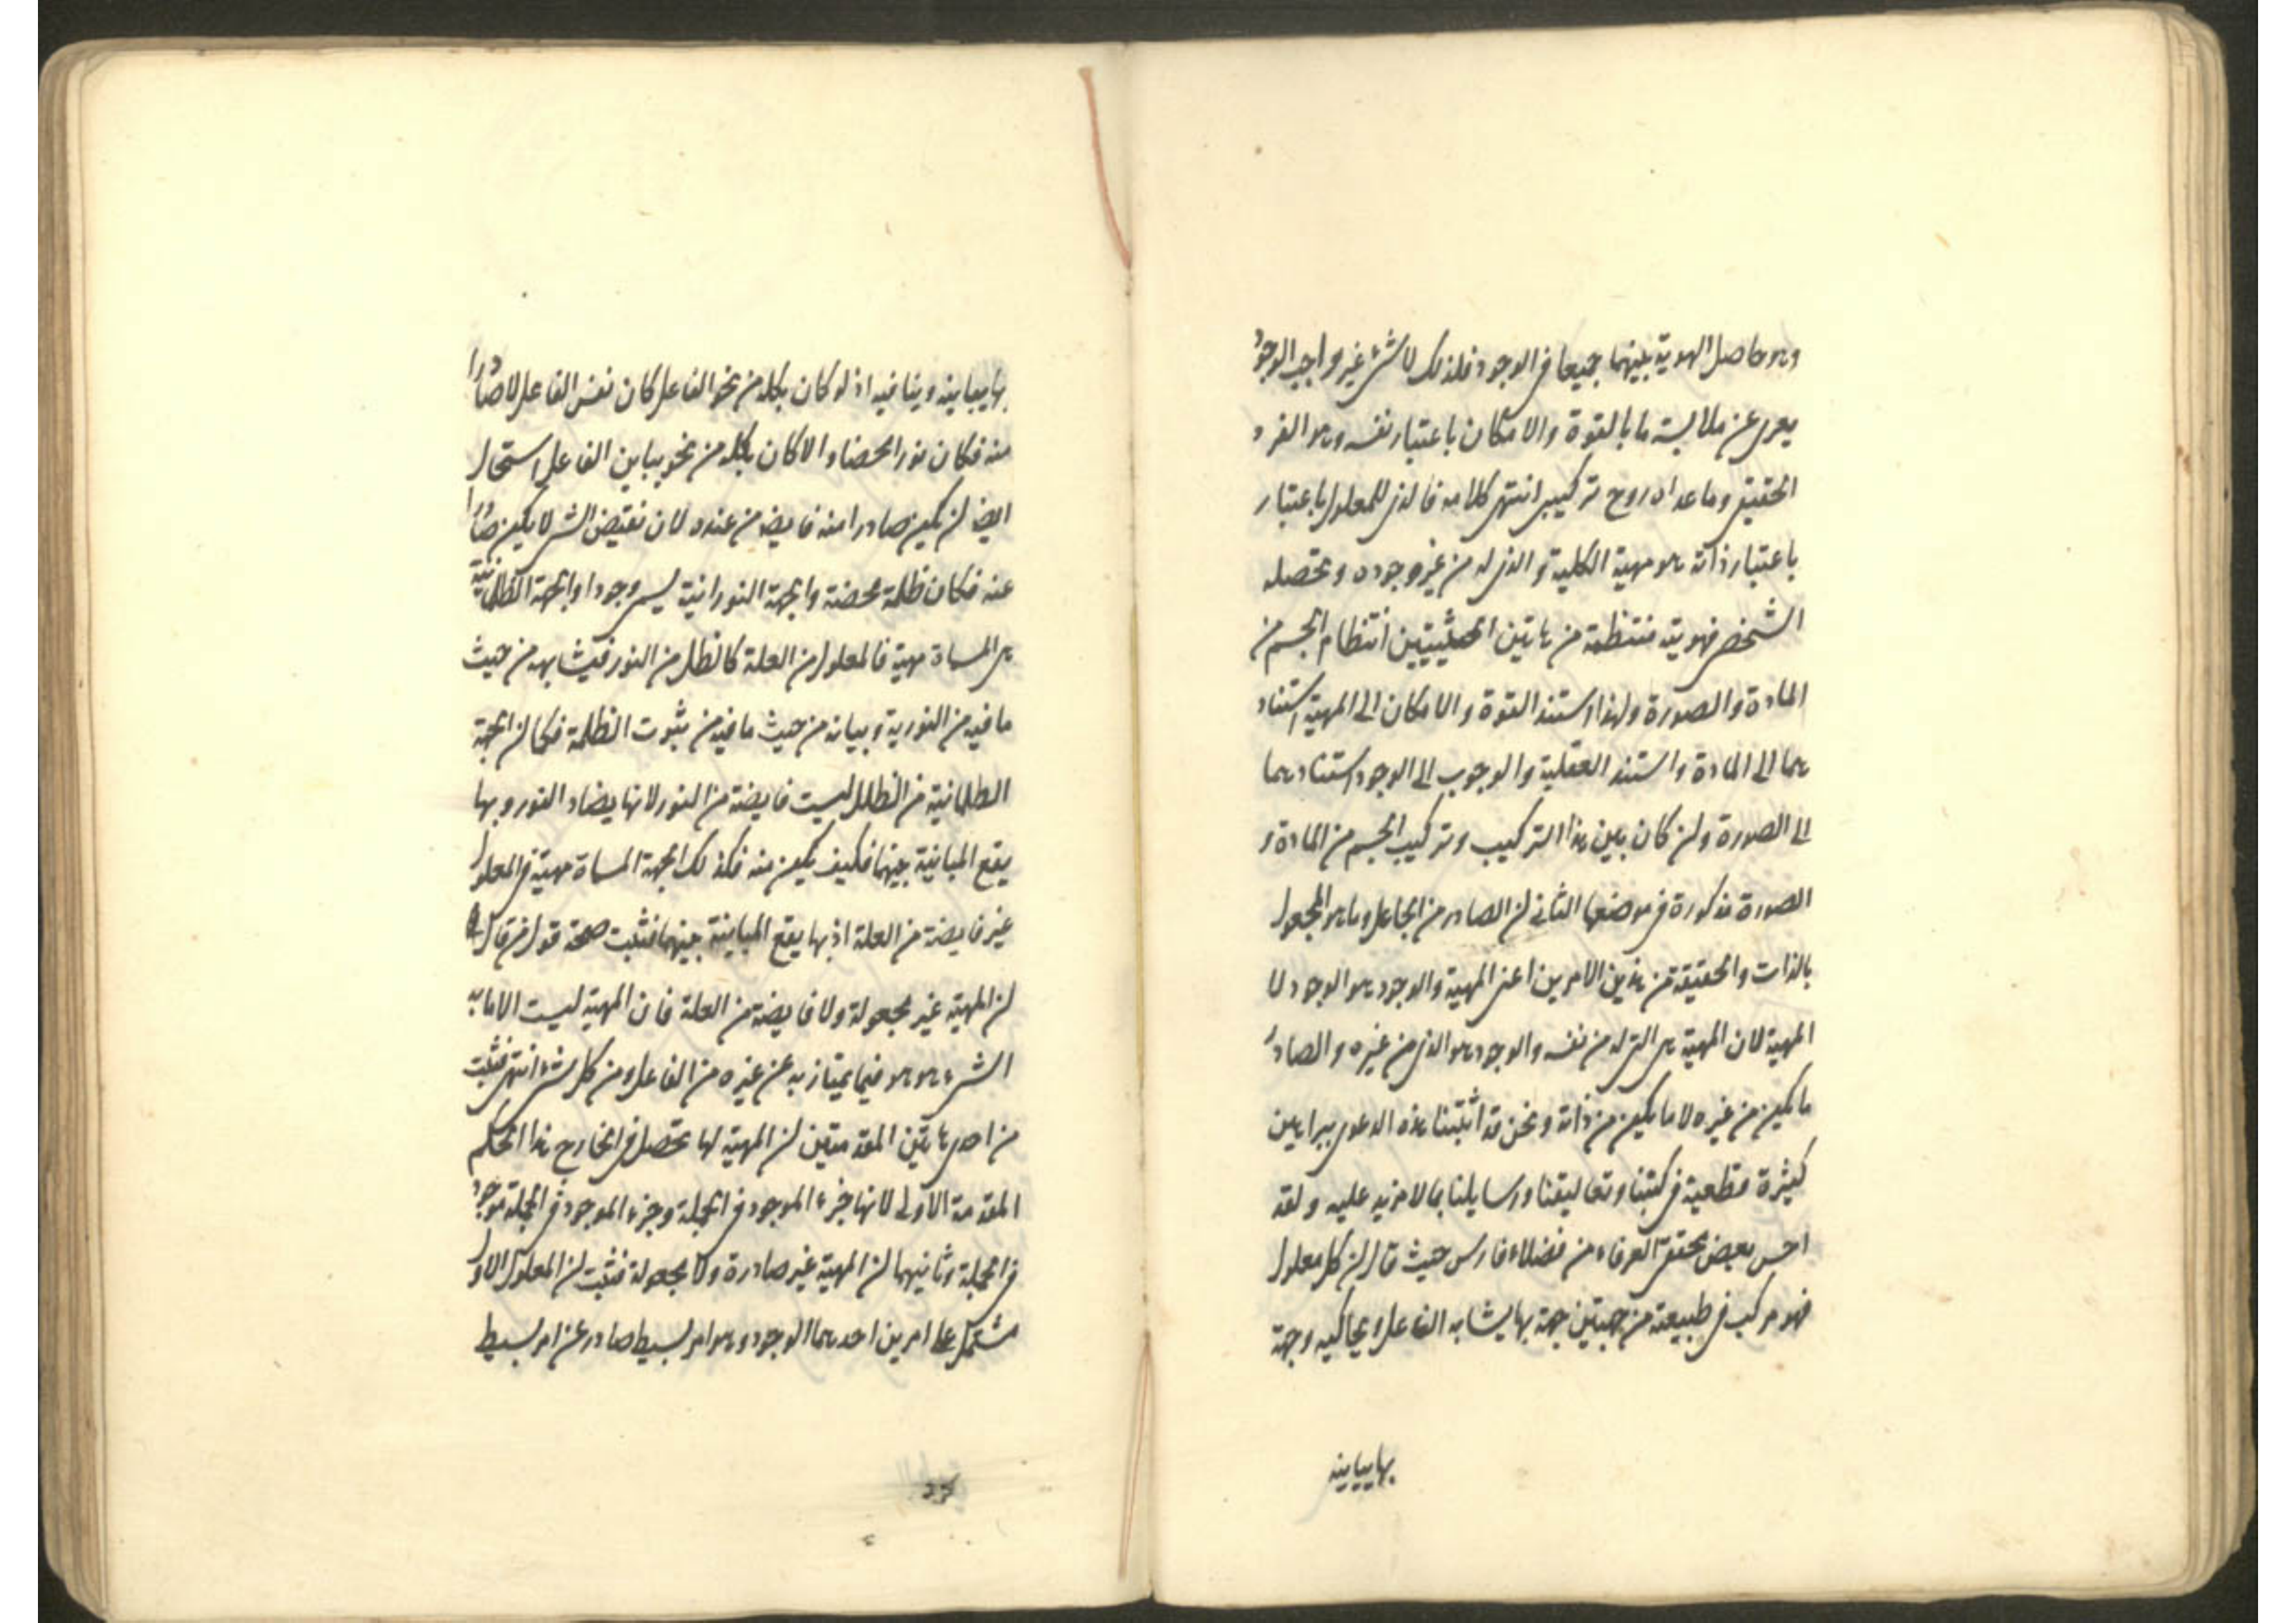 وهو حاصل الهوية بينهما جميعا فى الوجود فلذلك لا شىء غير واجب الوجود
يعرى عن ملابسة ما بالقوة والامكان باعتبار نفسه وهو الفرد
الحقيقى وما عداه زوج تركيبى انتهى كلامه فالذى للمعلول باعتبار
باعتبار ذاته هو مهية الكلية و الذى له من غيره وجوده و تحصله
الشخصى فهويته منتظمة من هاتين الحيثيتين انتظام الجسم من
المادة والصورة ولهذا استند القوة والامكان الى المهية استناد
هما الى المادة و استند العقلية والوجوب الى الوجود استنادهما
الى الصورة وان كان بين هذا التركيب وتركيب الجسم من المادة و
الصورة مذكورة فى موضعها الثانى ان الصادر من الجاعل وما هو المجعول
بالذات والحقيقة من هذين الامرين اعنى المهية والوجود هو الوجود لا
المهية لان المهية هى التى له من نفسه والوجود هو الذى من غيره و الصادر
ما يكون من غيره لا ما يكون من ذاته ونحن قد اثبتنا هذه الدعوى ببراهين
كثيرة قطعية فى كتبنا وتعاليقنا ورسايلنا بما لا مزيد عليه ولقد
احسن بعض محققى العرفاء من فضلاء فارس حيث قال ان كل معلول
فهو مركب فى طبيعته من جهتين جهة بها يشابه الفاعل ويحاكيه وجهة
بها يباينه
بها يباينه وينافيه اذ لو كان بكله من نحو الفاعل كان نفس الفاعل لا صادرا
منه فكان نورا محضا و الا كان بكله من نحو يباين الفاعل استحال
ايضا ان يكون صادرا منه فايضا من عنده لان نقيض الشى لا يكون صادرا
عنه فكان ظلمة محضة والجهة النورانية يسمى وجودا والجهة الظلمانية
هى المسماة مهية فالمعلول من العلة كالظل من النور فيشابهه من حيث
ما فيه من النورية و يباينه من حيث ما فيه من ثبوت الظلمة فكما ان الجهة
الظلمانية فى الظل ليست فايضة من النور لانها يضاد النور وبها
يقع المباينة بينهما فكيف يكون منه فكذلك الجهة المسماة مهية فى المعلول
غير فايضة من العلة اذ بها يقع المباينة بينهما فثبت صحة قول من قال
ان المهية غير مجعولة ولا فايضة من العلة فان المهية ليست الا ما به
الشىء هو هو فيما يمتاز به عن غيره من الفاعل ومن كل شىء انتهى فثبت
من احدى هاتين المقدمتين ان المهية لها تحصل فى الخارج هذا الحكم
المقدمة الاولى لانها جزء الموجود فى الجملة وجزء الموجود فى الجملة موجود
فى الجملة وثانيهما ان المهية غير صادرة ولا مجعولة فثبت ان المعلول الاول
مشتمل على امرين احدهما الوجود وهو امر بسيط صادر عن امر بسيط